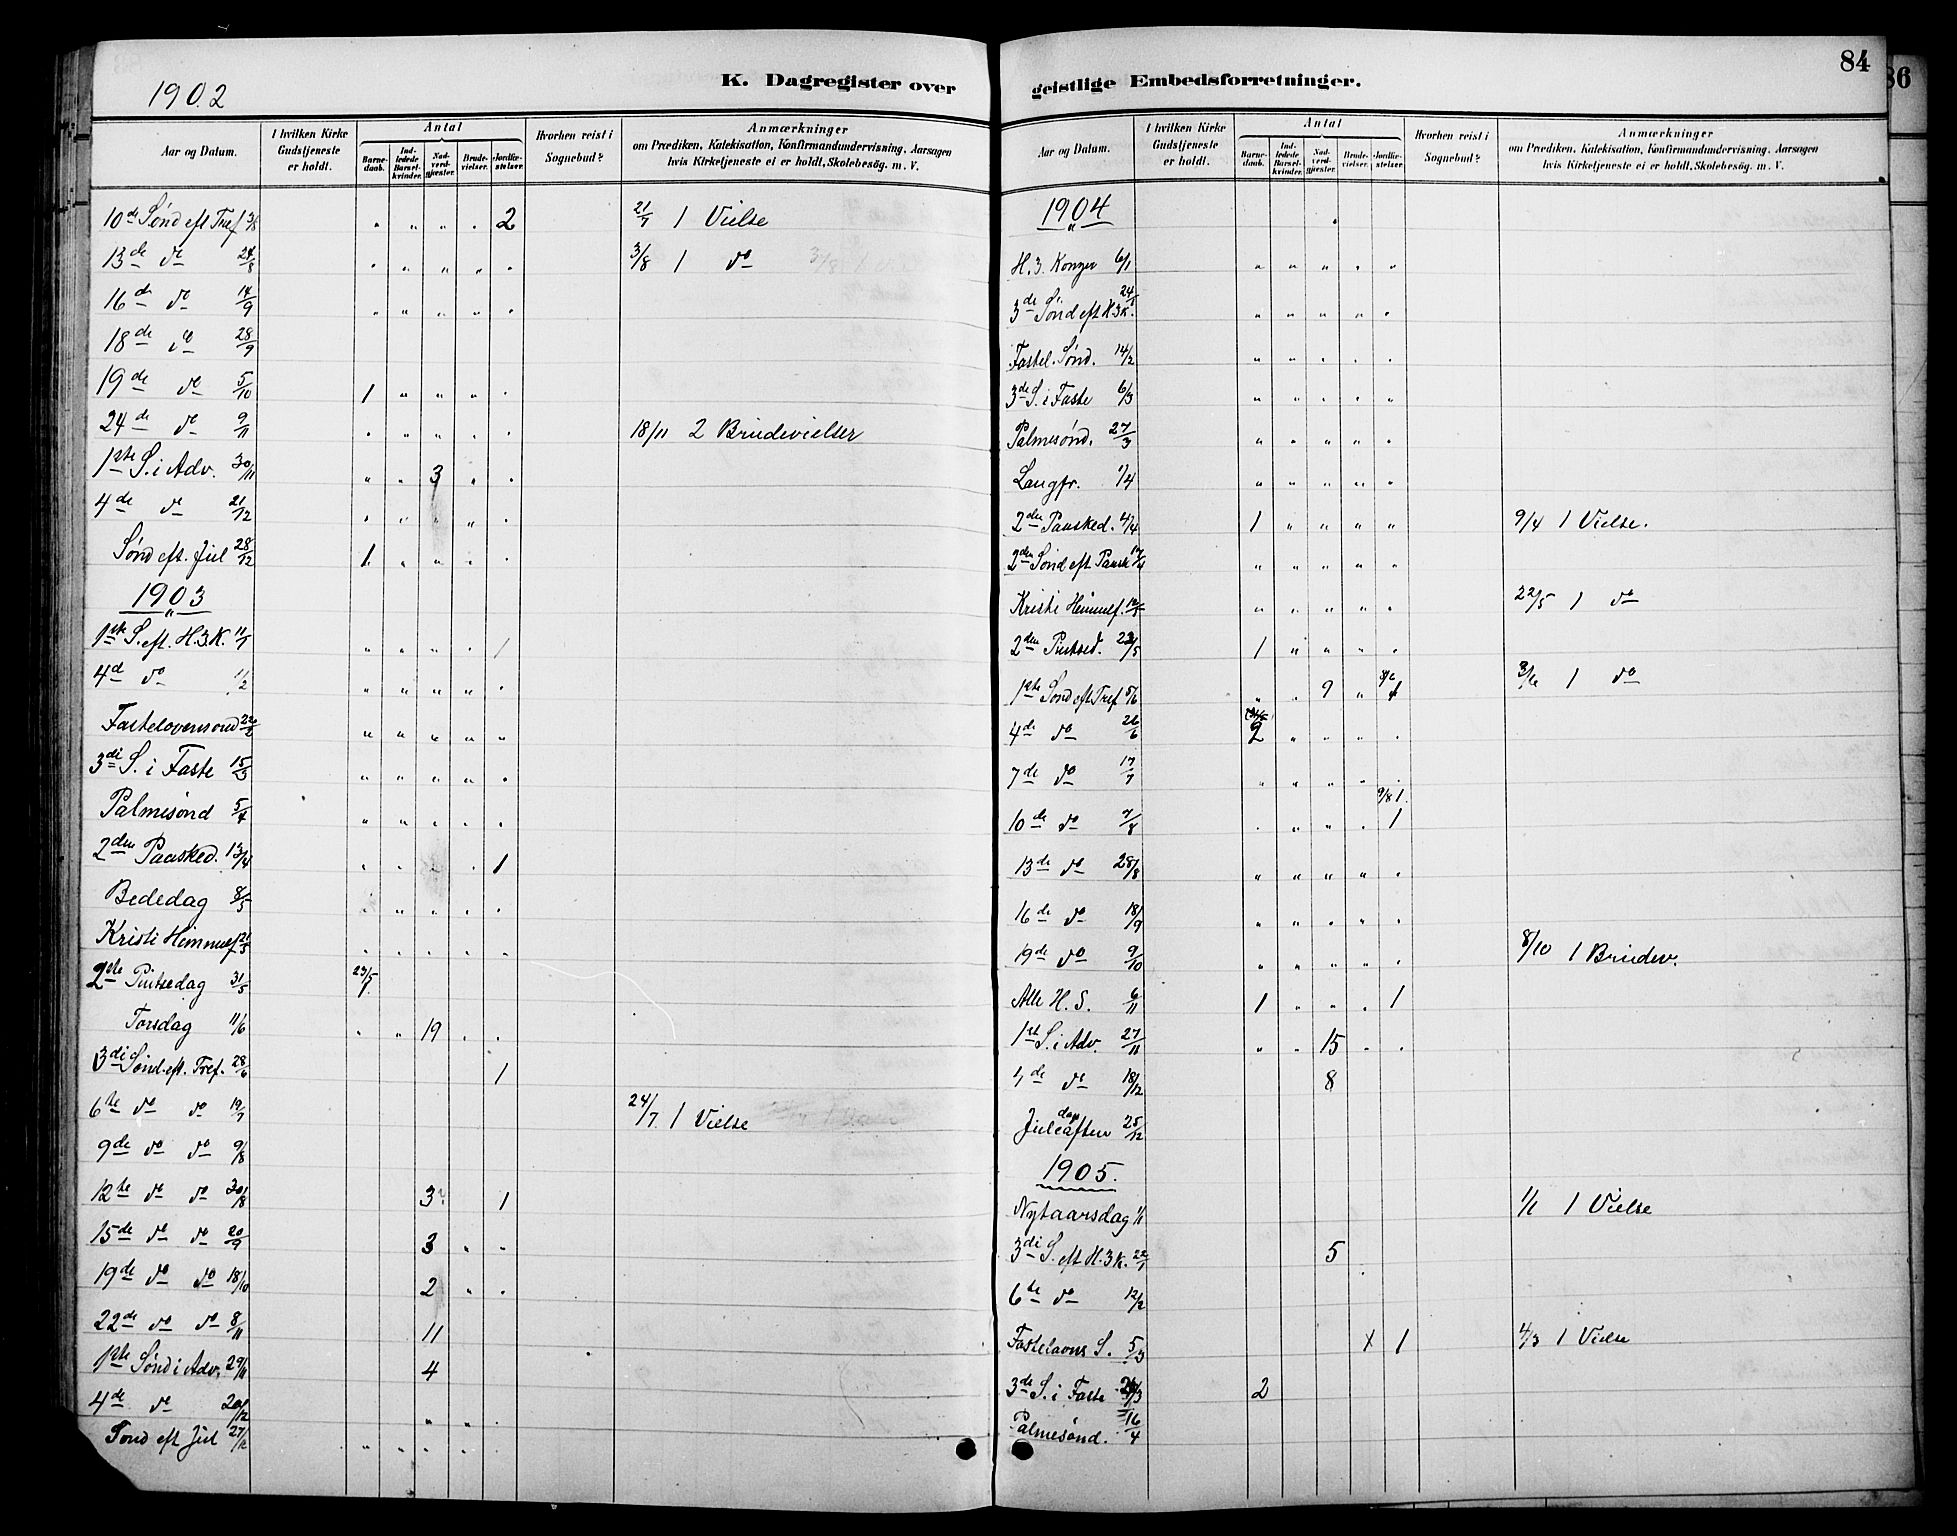 1902
K. Dagregister over
Aar og Datum.
I hvilken Kirke Gudstjeneste er holdt.
Antal
Barnedaab.
Indledede Barselkvinder.
Nadverdgjæster.
Brudevielser.
Jordfæstelser.
Hvorhen reist i Sognebud?
Anmærkninger
om Prædiken, Katekisation, Konfirmandundervisning, Aarsagen
hvis Kirketjeneste ei er holdt, Skolebesøg. m. V.
10de Sønd eft Tref 3/8 " " " " 2 21/7 1 Vielse
13de do 24/8 " " " " " 3/8 1 do
16de do 14/9 " " " " "
18de do 28/9
19de do 5/10 1 " " " "
24de do 9/11 " " " " " 18/11 2 Brudevielser
1ste S. i Adv. 30/11 " " 3 " "
4de do 21/12 " " " " "
Sønd eft. Jul 28/12 1 " " " "
1903
1ste S. eft. H.3.K. 11/1 " " " " 1
4de do 1/2 " " " " "
Fastelovensønd 22/2 " " " " "
3die S. i Faste 15/3 " " " " "
Palmesønd 5/4 " " " " "
2den Paasked. 13/4 " " " " 1
Bededag 8/5 " " " " "
Kristi Himmelf. 21/5 " " " " "
Pintsedag 31/5 23/5 1
Torsdag 11/6 " " 19 " "
3die Sønd. eft. Tref. 28/6 1
6te do do 19/7 24/7. 1 Vielse
9de do do 9/8
12te do do 30/8 3 1
15de do do 20/9 3 " "
19de do do 18/10 2 " "
22de do do 8/11 11
1ste Sønd i Adv. 29/11 4
4de do 20/12 " "
Sønd eft Jul 27/12 " " " " "
84
geistlige Embedsforretninger.
Aar og Datum.
I hvilken Kirke Gudstjeneste er holdt.
Antal
Barnedaab.
Indledede Barselkvinder.
Nadverdgjæster.
Brudevielser.
Jordfæstelser.
Hvorhen reist i Sognebud?
Anmærkninger
om Prædiken, Katekisation, Konfirmandundervisning, Aarsagen
hvis Kirketjeneste ei er holdt, Skolebesøg. m. V.
1904
H. 3. Konger 6/1 " " " " "
3de Sønd eft H3K. 24/1 " " " " "
Fastel. Sønd. 14/2 " " " " "
3de S. i Faste 6/3 " " " " "
Palmesønd. 27/3 " " " " "
Langfr. 1/4 " " " " "
2den Paasked. 4/4 1 " " " " 9/4 1 Vielse.
2den Sønd eft Paask 17/4 " " " " "
Kristi Himmelf. 12/5 " " " " " 22/5 1 do
2den Pintsed. 23/5 1 " " " "
1ste Sønd eft Tref 5/6 " " 9 " 1 3/6 1 do
4de do 26/6 2 " " " "
7de do 17/7 " " " " "
9/8 1.
10de do 7/8 " " " " 1
13de do 28/8 " " " " "
16de do 18/9 " " " " "
19de do 9/10 " " " " " 8/10 1 Brudev.
Alle H. S. 6/11 1 " " " 1
1ste S. i Adv. 27/11 " " 15 " "
4de do 18/12 8
Juleaften dag 25/12
1905.
Nytaarsdag 1/1 1/1 1 Vielse
3die S. eft H.3K. 22/1 5
6te do 12/2
Fastelavns S. 5/3 x 1 4/3 1 Vielse
3de S. i Faste 26/3 2
Palmesønd. 16/4
86